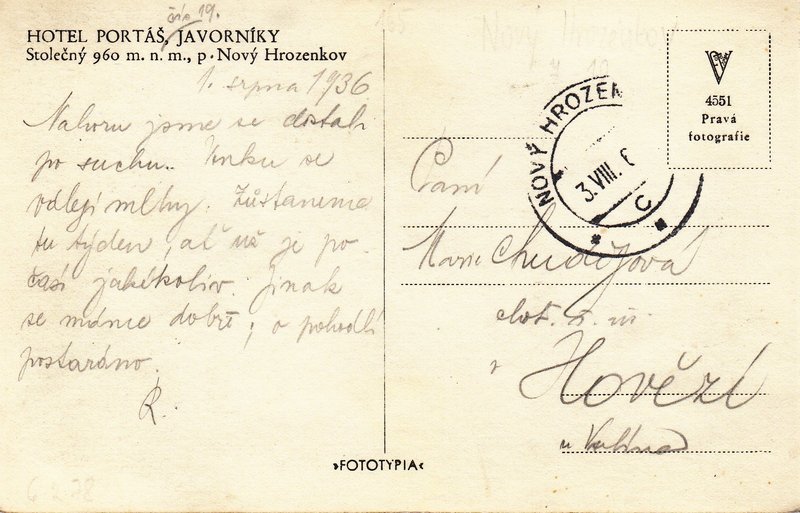 číslo 19.
HOTEL PORTÁŠ, JAVORNÍKY
Stolečný 960 m. n. m., p. Nový Hrozenkov
1. srpna 1936
Nahoru jsme se dostali
po suchu. Venku se
válejí mlhy. Zůstaneme
tu týden, ať už je po-
časí jakékoliv. Jinak
se máme dobře, o pohodlí
postaráno.
R.
6 2 78
»FOTOTYPIA«
Nový Hrozenkov
NOVÝ HROZEN
3.VIII. 6
C
4551
Pravá
fotografie
Paní
Marie Chudějová
Hovězí
u Vsetína